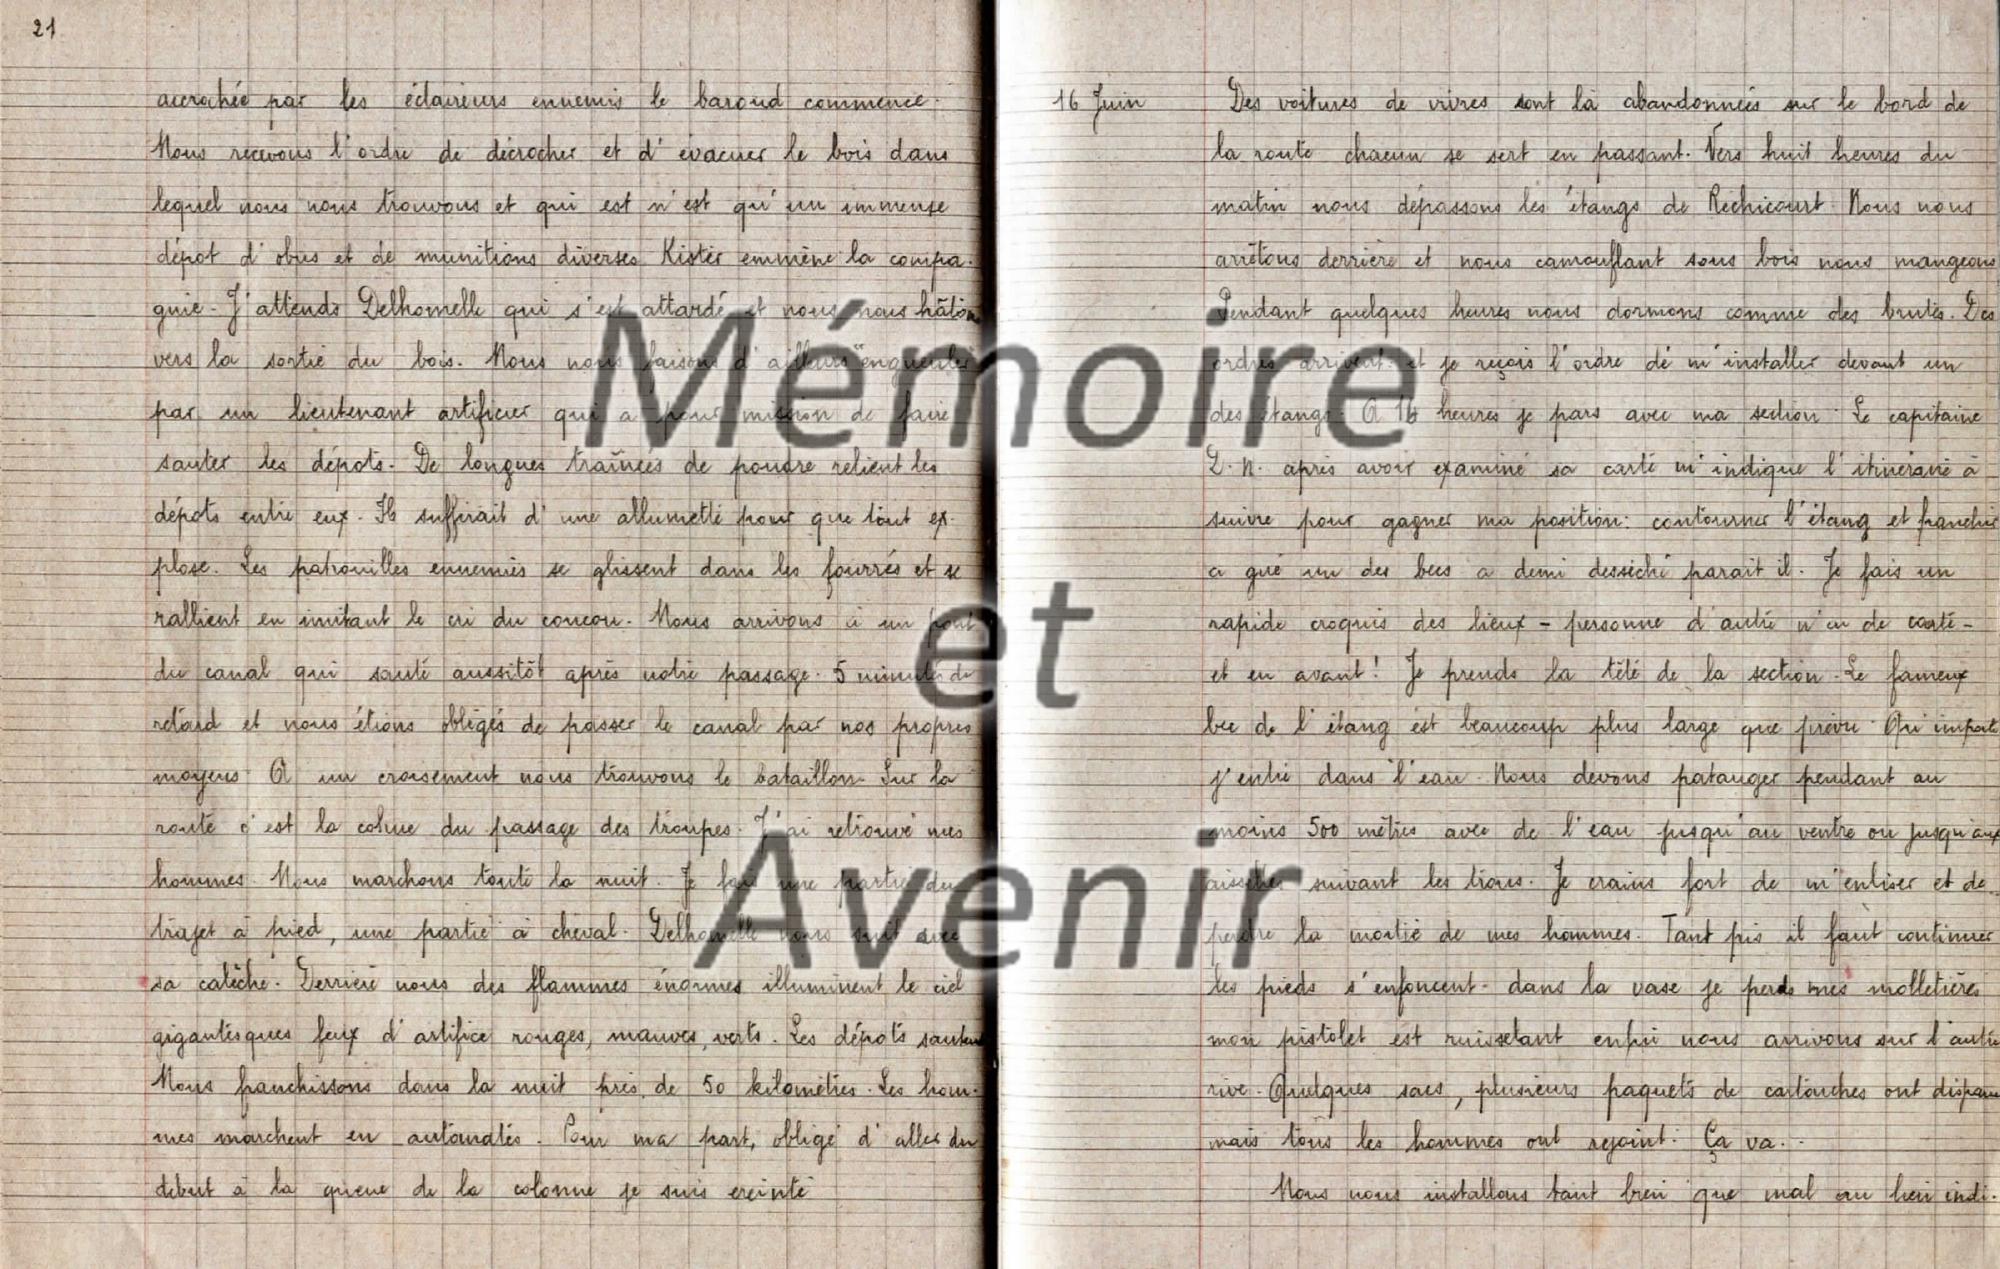 21
accrochée par les éclaireurs ennemis le baroud commence.
Nous recevons l'ordre de décrocher et d'évacuer le bois dans
lequel nous nous trouvons et qui est n'est qu'un immense
dépot d'obus et de munitions diverses Kister emmène la compa-
gnie - J'attends Delhomelle qui s'est attardé et nous nous hâtons
vers la sortie du bois. Nous nous faisons d'ailleurs "engueuler"
par un lieutenant artificier qui a pour mission de faire
sauter les dépots. De longues traînées de poudre relient les
dépots entre eux. Il suffirait d'une allumette pour que tout ex-
plose. Les patrouilles ennemies se glissent dans les fourrés et se
rallient en imitant le cri du coucou. Nous arrivons à un pont
du canal qui saute aussitôt après notre passage. 5 minutes de
retard et nous étions obligés de passer le canal par nos propres
moyens. A un croisement nous trouvons le bataillon. Sur la
route c'est la cohue du passage des troupes. J'ai retrouvé mes
hommes. Nous marchons toute la nuit. Je fais une partie du
trajet à pied, une partie à cheval. Delhomelle nous suit avec
sa calèche. Derrière nous des flammes énormes illuminent le ciel
gigantesques feux d'artifice rouges, mauves, verts. Les dépots sautent
Nous franchissons dans la nuit près de 50 kilomètres. Les hom-
mes marchent en automates. Pour ma part, obligé d'aller du
début à la queue de la colonne je suis éreinté
16 Juin Des voitures de vivres sont là abandonnées sur le bord de
la route chacun se sert en passant. Vers huit heures du
matin nous dépassons les étangs de Réchicourt. Nous nous
arrêtons derrière et nous camouflant sous bois nous mangeons
Pendant quelques heures nous dormons comme des brutes. Des
ordres arrivent: et je reçois l'ordre de m'installer devant un
des étangs. A heures je pars avec ma section. Le capitaine
L.N. après avoir examiné sa carte m'indique l'itinéraire à
suivre pour gagner ma position: contourner l'étang et franchir
a gué un des becs a demi desséché parait il. Je fais un
rapide croquis des lieux - personne d'autre n'a de carte -
et en avant! Je prends la tête de la section. Le fameux
bec de l'étang est beaucoup plus large que prévu. Qu'importe
j'entre dans l'eau. Nous devons patauger pendant au
moins 500 mètres avec de l'eau jusqu'au ventre ou jusqu'aux
aisselles suivant les trous. Je crains fort de m'enliser et de
perdre la moitié de mes hommes. Tant pis il faut continuer
les pieds s'enfoncent - dans la vase je perds mes molletières
mon pistolet est ruisselant enfin nous arrivons sur l'autre
rive. Quelques sacs, plusieurs paquets de cartouches ont disparu
mais tous les hommes ont rejoint. Ça va..
Nous nous installons tant bien que mal au lieu indi-
Mémoire
et
Avenir